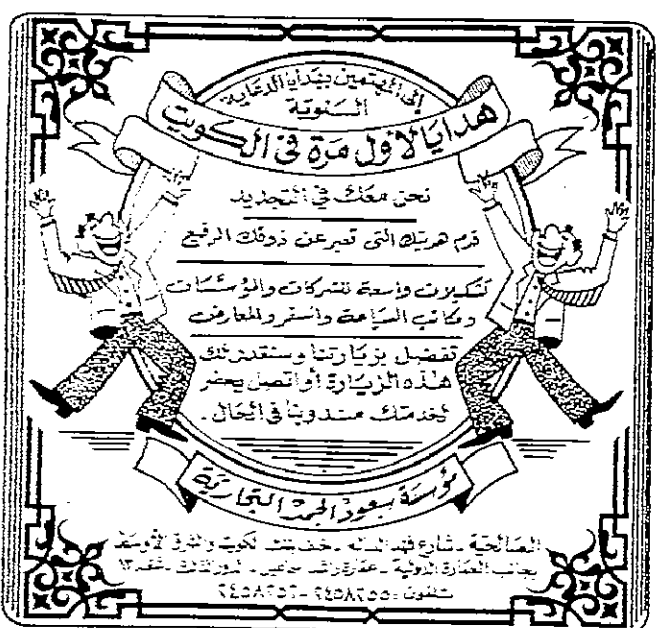 إلى المهتمين بهدايا الدعاية
السنوية
هدايا لأول مرة في الكويت
نحن معك في التجديد
قدم هديتك التي تعبر عن ذوقك الرفيع
تشكيلات واسعة للشركات والمؤسسات
ومكاتب السياحة والسفر والمعارض
تفضل بزيارتنا وسنقدر لك
هذه الزيارة أو اتصل يحضر
لخدمتك مندوبنا في الحال .
مؤسسة سعود الحمد التجارية
الصالحية - شارع فهد السالم - خلف بنك الكويت والشرق الأوسط
بجانب العمارة الدولية - عمارة راشد - الدور الثالث - شقة ١٣
تلفون : ٢٤٥٨٢٥٥ - ٢٤٥٨٢٥٦